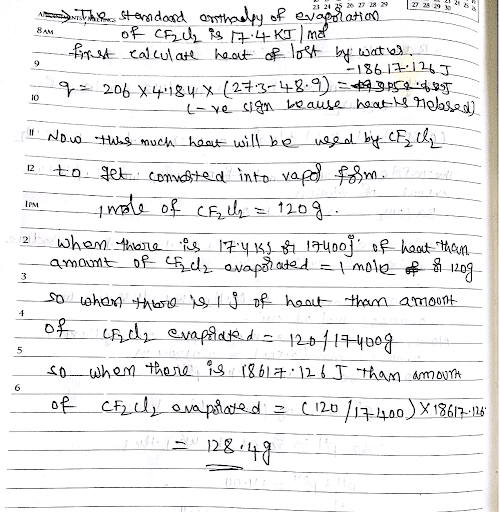 23 24 25 26 27 28 29
27 28 29 30
The standard enthalpy of evaporation
8AM
of CF2Cl2 is 17.4 KJ/mol
first calculate heat of lost by water.
9
-18617.126 J
q = 206 x 4.184 x (27.3-48.9) =
10
(-ve sign because heat is released)
11 Now this much heat will be used by CF2Cl2
12 to get converted into vapor form.
1PM
1 mole of CF2Cl2 = 120g.
2 when there is 17.4 KJ or 17400j of heat than
amount of CF2Cl2 evaporated = 1 mole or 120g
3
so when there is 1 j of heat than amount
4
of CF2Cl2 evaporated = 120/17400g
5
so when there is 18617.126J than amount
6
of CF2Cl2 evaporated = (120/17400) x 18617.126
= 128.4g